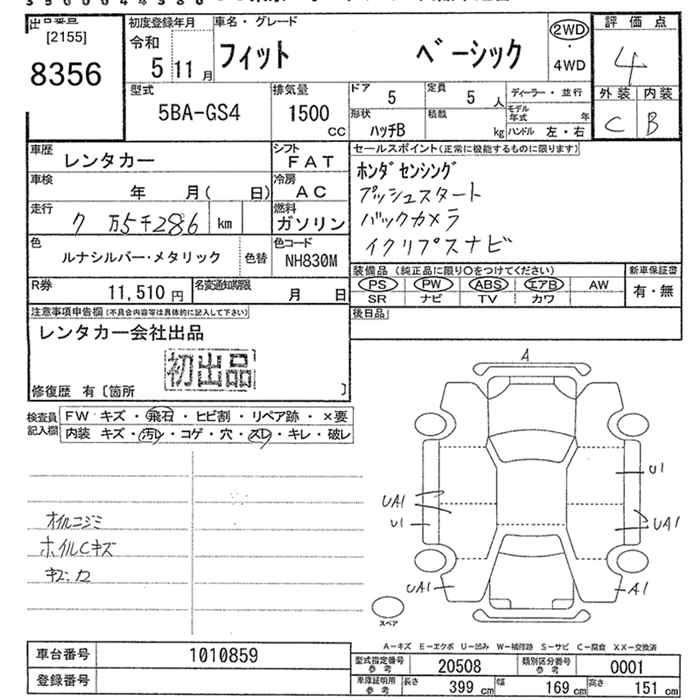 出品番号
[2155]
8356
初度登録年月
令和
5 11月
車名・グレード
フィット ベーシック
2WD
・
4WD
評価点
4
外装 内装
C B
型式
5BA-GS4
排気量
1500
CC
ドア 5
定員 5 人
ディーラー・並行
形状 ハッチB
積載 kg
モデル年式 年
ハンドル 左・右
車歴 レンタカー
シフト FAT
セールスポイント(正常に機能するものに限ります)
車検 年 月( 日)
冷房 AC
ホンダセンシング
プッシュスタート
バックカメラ
イクリプスナビ
走行 7万5千286 km
燃料 ガソリン
色 ルナシルバー・メタリック
色替
色コード NH830M
装備品(純正品に限り○をつけてください)
新車保証書
PS PW ABS エアB AW
SR ナビ TV カワ
有・無
R券 11,510円
名変通知期限 月 日
後日品
注意事項申告欄(不具合内容等は具体的に記入して下さい)
レンタカー会社出品
初出品
修復歴 有〔箇所 〕
検査員記入欄
FW キズ・飛石・ヒビ割・リペア跡・×要
内装 キズ・汚レ・コゲ・穴・スレ・キレ・破レ
A
U1
UA1
U1
UA1
UA1
A1
オイルニジミ
ホイルCキズ
スペア
A−キズ E−エクボ U−凹み W−補修跡 S−サビ C−腐食 XX−交換済
車台番号 1010859
登録番号
型式指定番号 参考 20508
類別区分番号 参考 0001
車庫証明用 参考 長さ 399 cm
幅 169 cm
高さ 151 cm